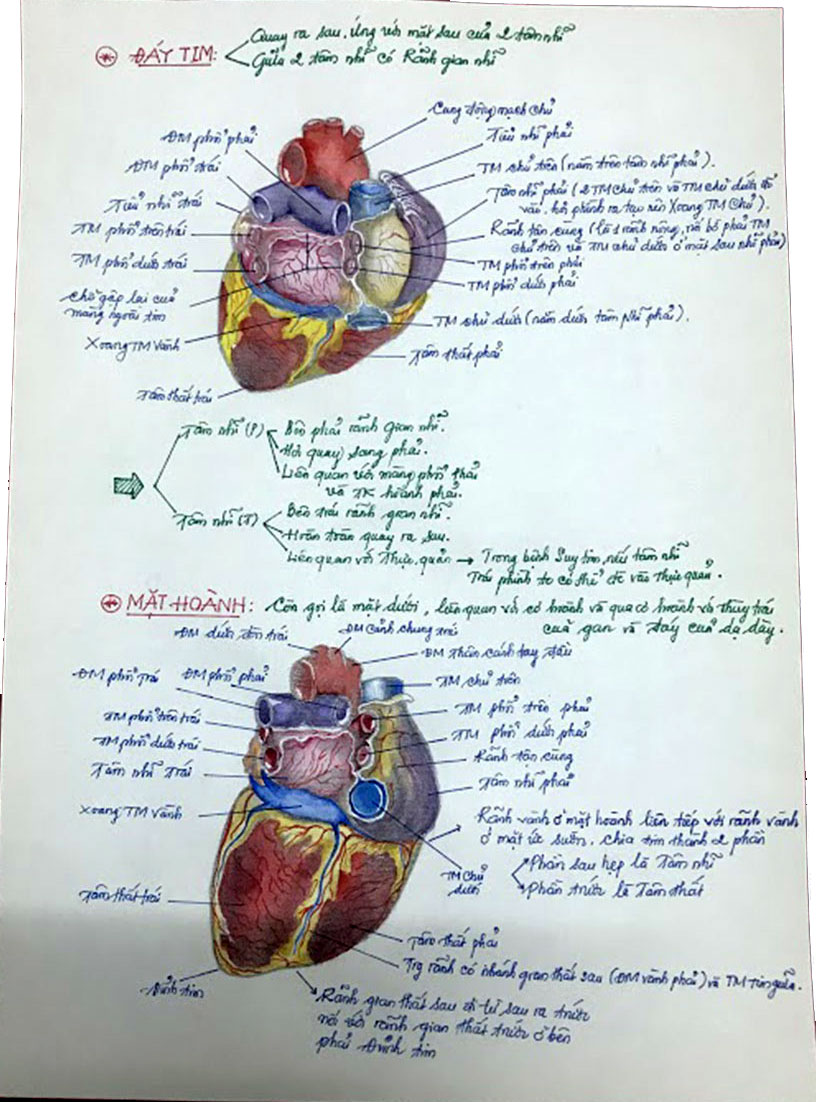 ĐÁY TIM:
Quay ra sau, ứng với mặt sau của 2 tâm nhĩ
Giữa 2 tâm nhĩ có Rãnh gian nhĩ
Cung động mạch chủ
ĐM phổi phải
Tiểu nhĩ phải
ĐM phổi trái
TM chủ trên (nằm trên tâm nhĩ phải).
Tiểu nhĩ trái
Tâm nhĩ phải (2 TM chủ trên và TM chủ dưới đổ
vào, hơi phình ra tạo nên Xoang TM Chủ).
TM phổi trên trái
Rãnh tận cùng (là 1 rãnh nông, nối bờ phải TM
chủ trên và TM chủ dưới ở mặt sau nhĩ phải)
TM phổi dưới trái
TM phổi trên phải
TM phổi dưới phải
Chỗ gấp lại của
màng ngoài tim
TM chủ dưới (nằm dưới tâm Nhĩ phải).
Xoang TM Vành
Tâm thất phải
Tâm thất trái
Tâm nhĩ (P)
Bên phải rãnh gian nhĩ.
Hơi quay sang phải.
Liên quan với màng phổi phải
và TK hoành phải.
Tâm nhĩ (T)
Bên trái rãnh gian nhĩ.
Hoàn toàn quay ra sau.
Liên quan với Thực quản → Trong bệnh Suy tim, nếu tâm nhĩ
Trái phình to có thể đè vào thực quản.
MẶT HOÀNH: Còn gọi là mặt dưới, liên quan với cơ hoành và qua cơ hoành với thùy trái
của gan và đáy của dạ dày.
ĐM dưới đòn trái
ĐM Cảnh chung trái
ĐM thân cánh tay đầu
ĐM phổi Trái
ĐM phổi phải
TM chủ trên
TM phổi trên trái
TM phổi trên phải
TM phổi dưới trái
TM phổi dưới phải
Tâm nhĩ Trái
Rãnh tận cùng
Tâm nhĩ phải
Xoang TM Vành
Rãnh vành ở mặt hoành liên tiếp với rãnh vành
ở mặt ức sườn, chia tim thành 2 phần
Phần sau hẹp là Tâm nhĩ
Phần trước là Tâm thất
TM Chủ
dưới
Tâm thất trái
Tâm thất phải
Trg rãnh có nhánh gian thất sau (ĐM vành phải) và TM Tim giữa.
Đỉnh tim
Rãnh gian thất sau đi từ sau ra trước
nối với rãnh gian thất trước ở bên
phải Đỉnh tim